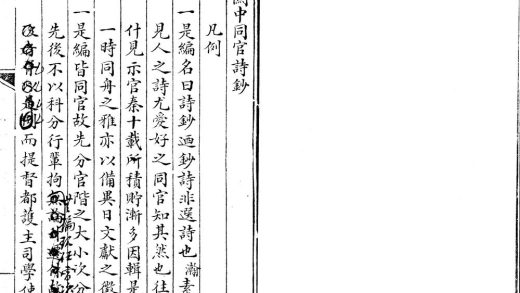 關中同官詩鈔
凡例
一是編名曰詩鈔迺鈔詩非選詩也瀚素
見人之詩尤愛好之同官知其然也往
什見示官秦十載所積貯漸多因輯是
一時同舟之雅亦以備異日文獻之徵
一是編皆同官故先分官階之大小次分
先後不以科分行輩拘
而提督都護主司學使